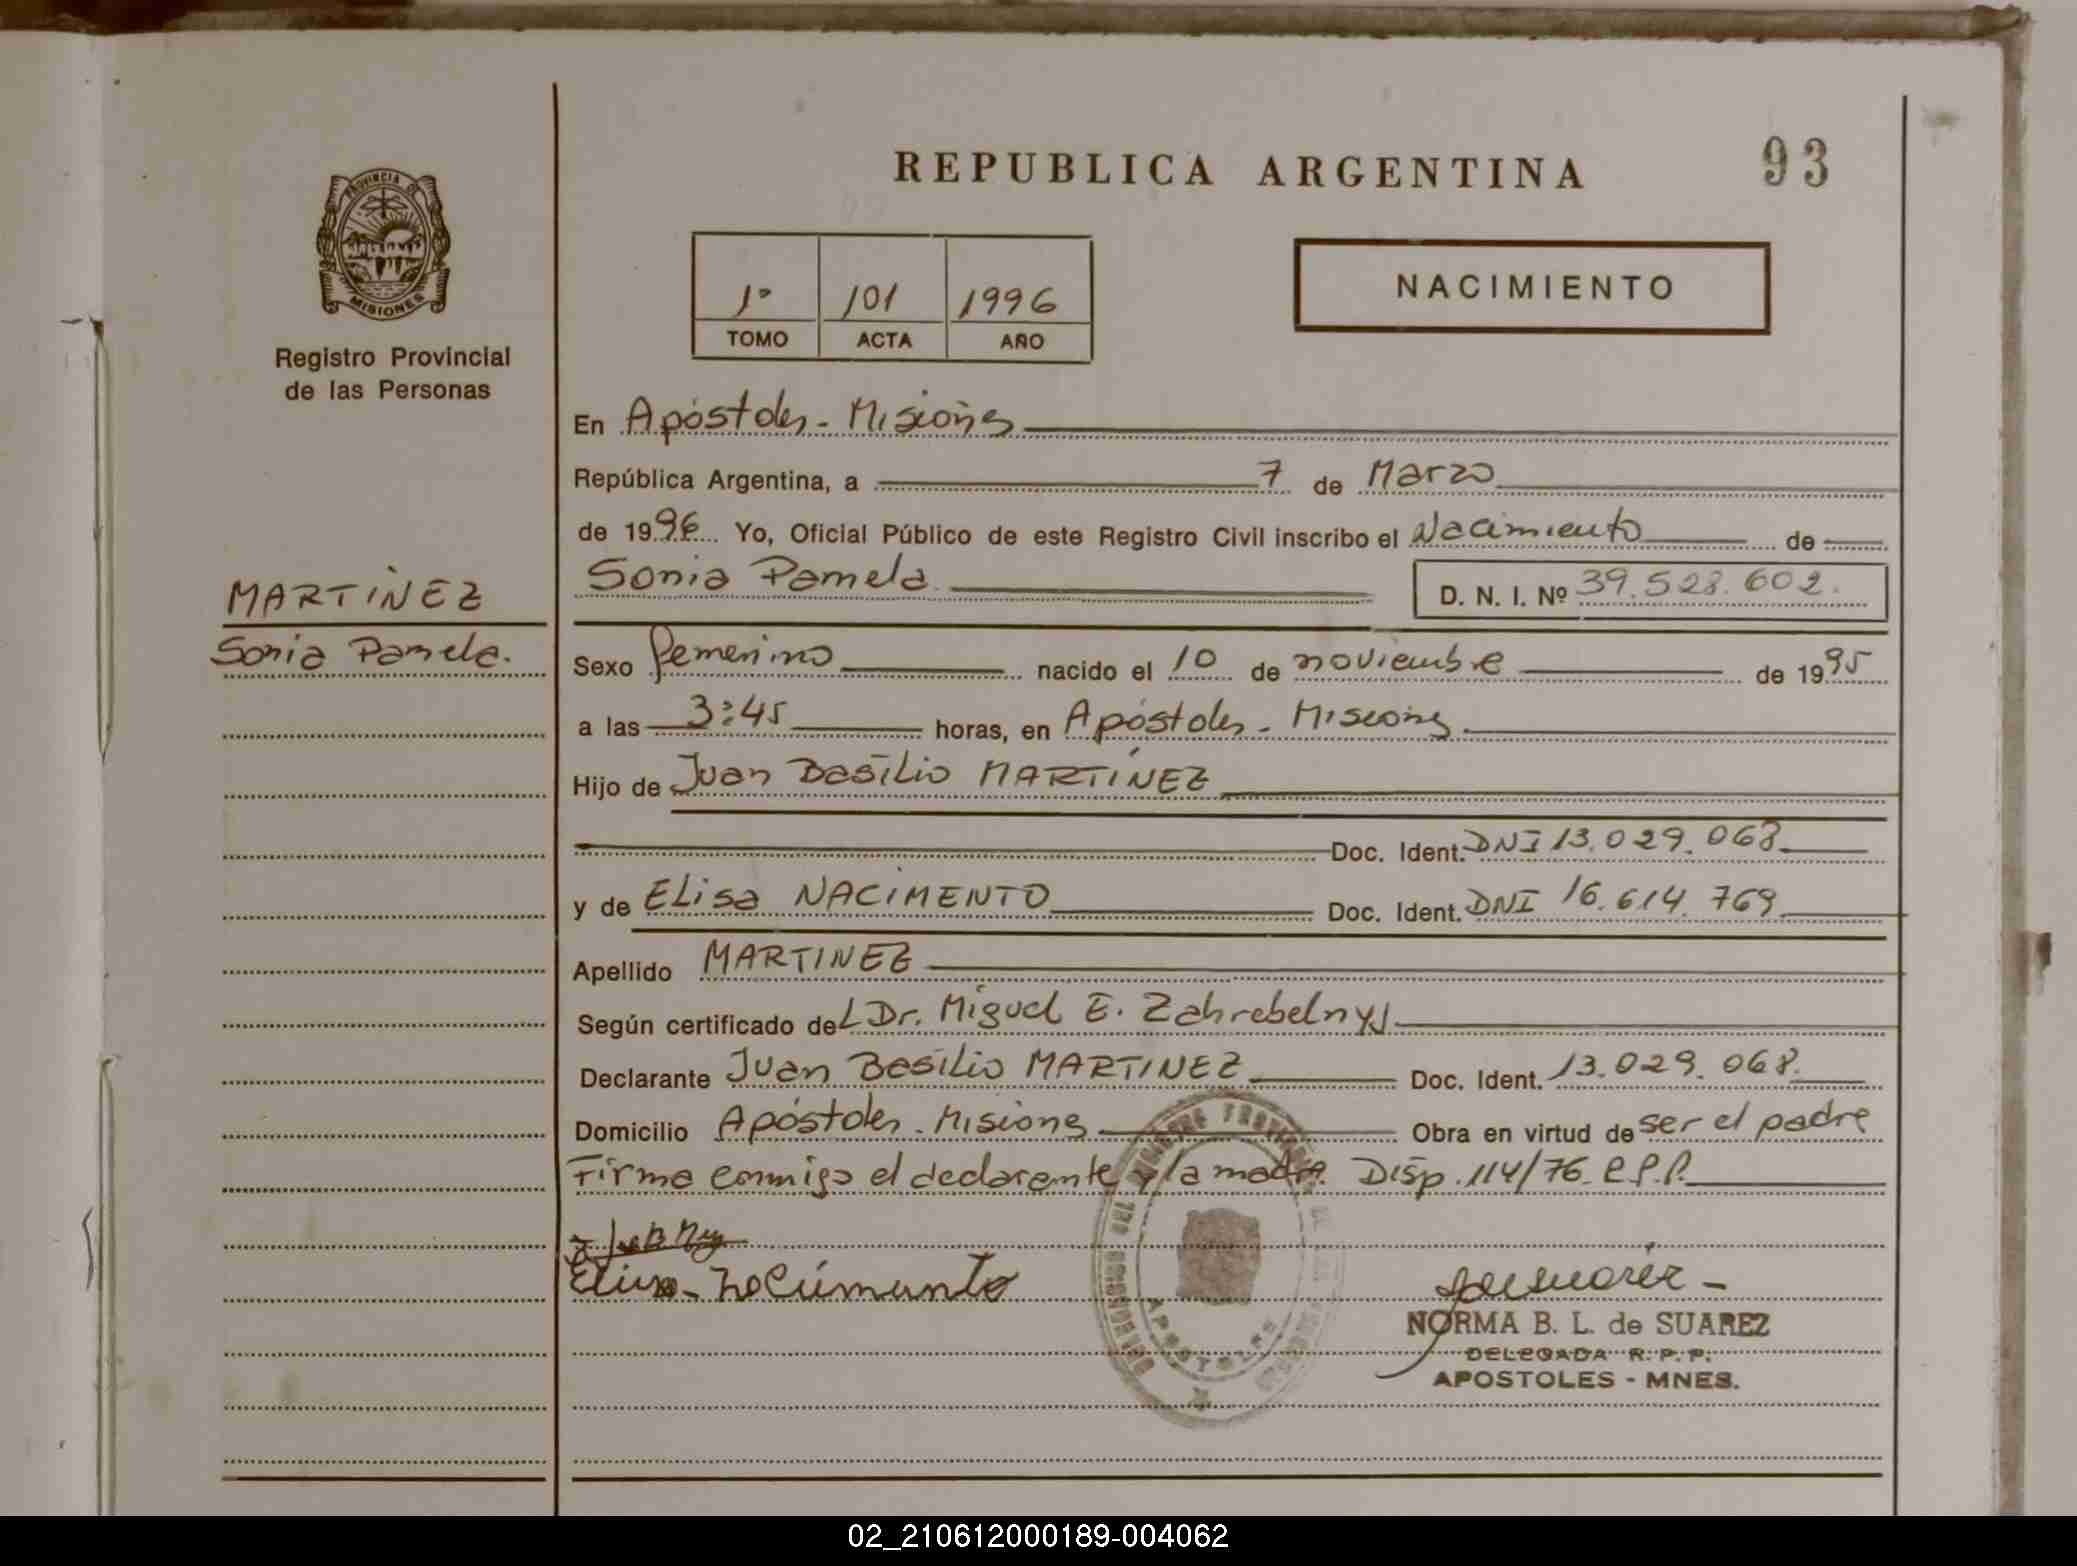 REPUBLICA ARGENTINA
93
PROVINCIA DE
MISIONES
Registro Provincial
de las Personas
1º 101 1996
TOMO ACTA AÑO
NACIMIENTO
En Apóstoles - Misiones
República Argentina, a 7 de Marzo
de 1996 Yo, Oficial Público de este Registro Civil inscribo el Nacimiento de
Sonia Pamela D. N. I. Nº 39.528.602.
MARTÍNEZ
Sonia Pamela.
Sexo femenino nacido el 10 de noviembre de 1995
a las 3:45 horas, en Apóstoles - Misiones
Hijo de Juan Basilio MARTÍNEZ
Doc. Ident. DNI 13.029.068
y de Elisa NACIMENTO Doc. Ident. DNI 16.614.769
Apellido MARTINEZ
Según certificado del Dr. Miguel E. Zahrebelnyj
Declarante Juan Basilio MARTINEZ Doc. Ident. 13.029.068.
Domicilio Apóstoles - Misiones Obra en virtud de ser el padre
Firma conmigo el declarante y la madre. Disp. 114/76. R.P.P.
NORMA B. L. de SUAREZ
DELEGADA R. P. P.
APOSTOLES - MNES.
APOSTOLES
02_210612000189-004062